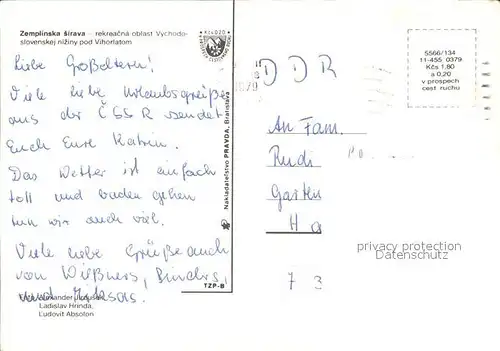 Zemplínska šírava – rekreačná oblast Východo-
slovenskej nížiny pod Vihorlatom
Liebe Großeltern!
Viele liebe Urlaubsgrüße
aus der ČSSR sendet
Euch Eure Katrin.
Das Wetter ist einfach
toll und baden gehen
tun wir auch viel.
Viele liebe Grüße auch
von
und
Ladislav Hrinda,
Ľudovít Absolon
TZP-B
Nakladateľstvo PRAVDA, Bratislava
DDR
5566/134
11-455 0379
Kčs 1,80
a 0,20
v prospech
cest ruchu
An Fam.
Rudi
Garten
Ha
7 3
privacy protection
Datenschutz